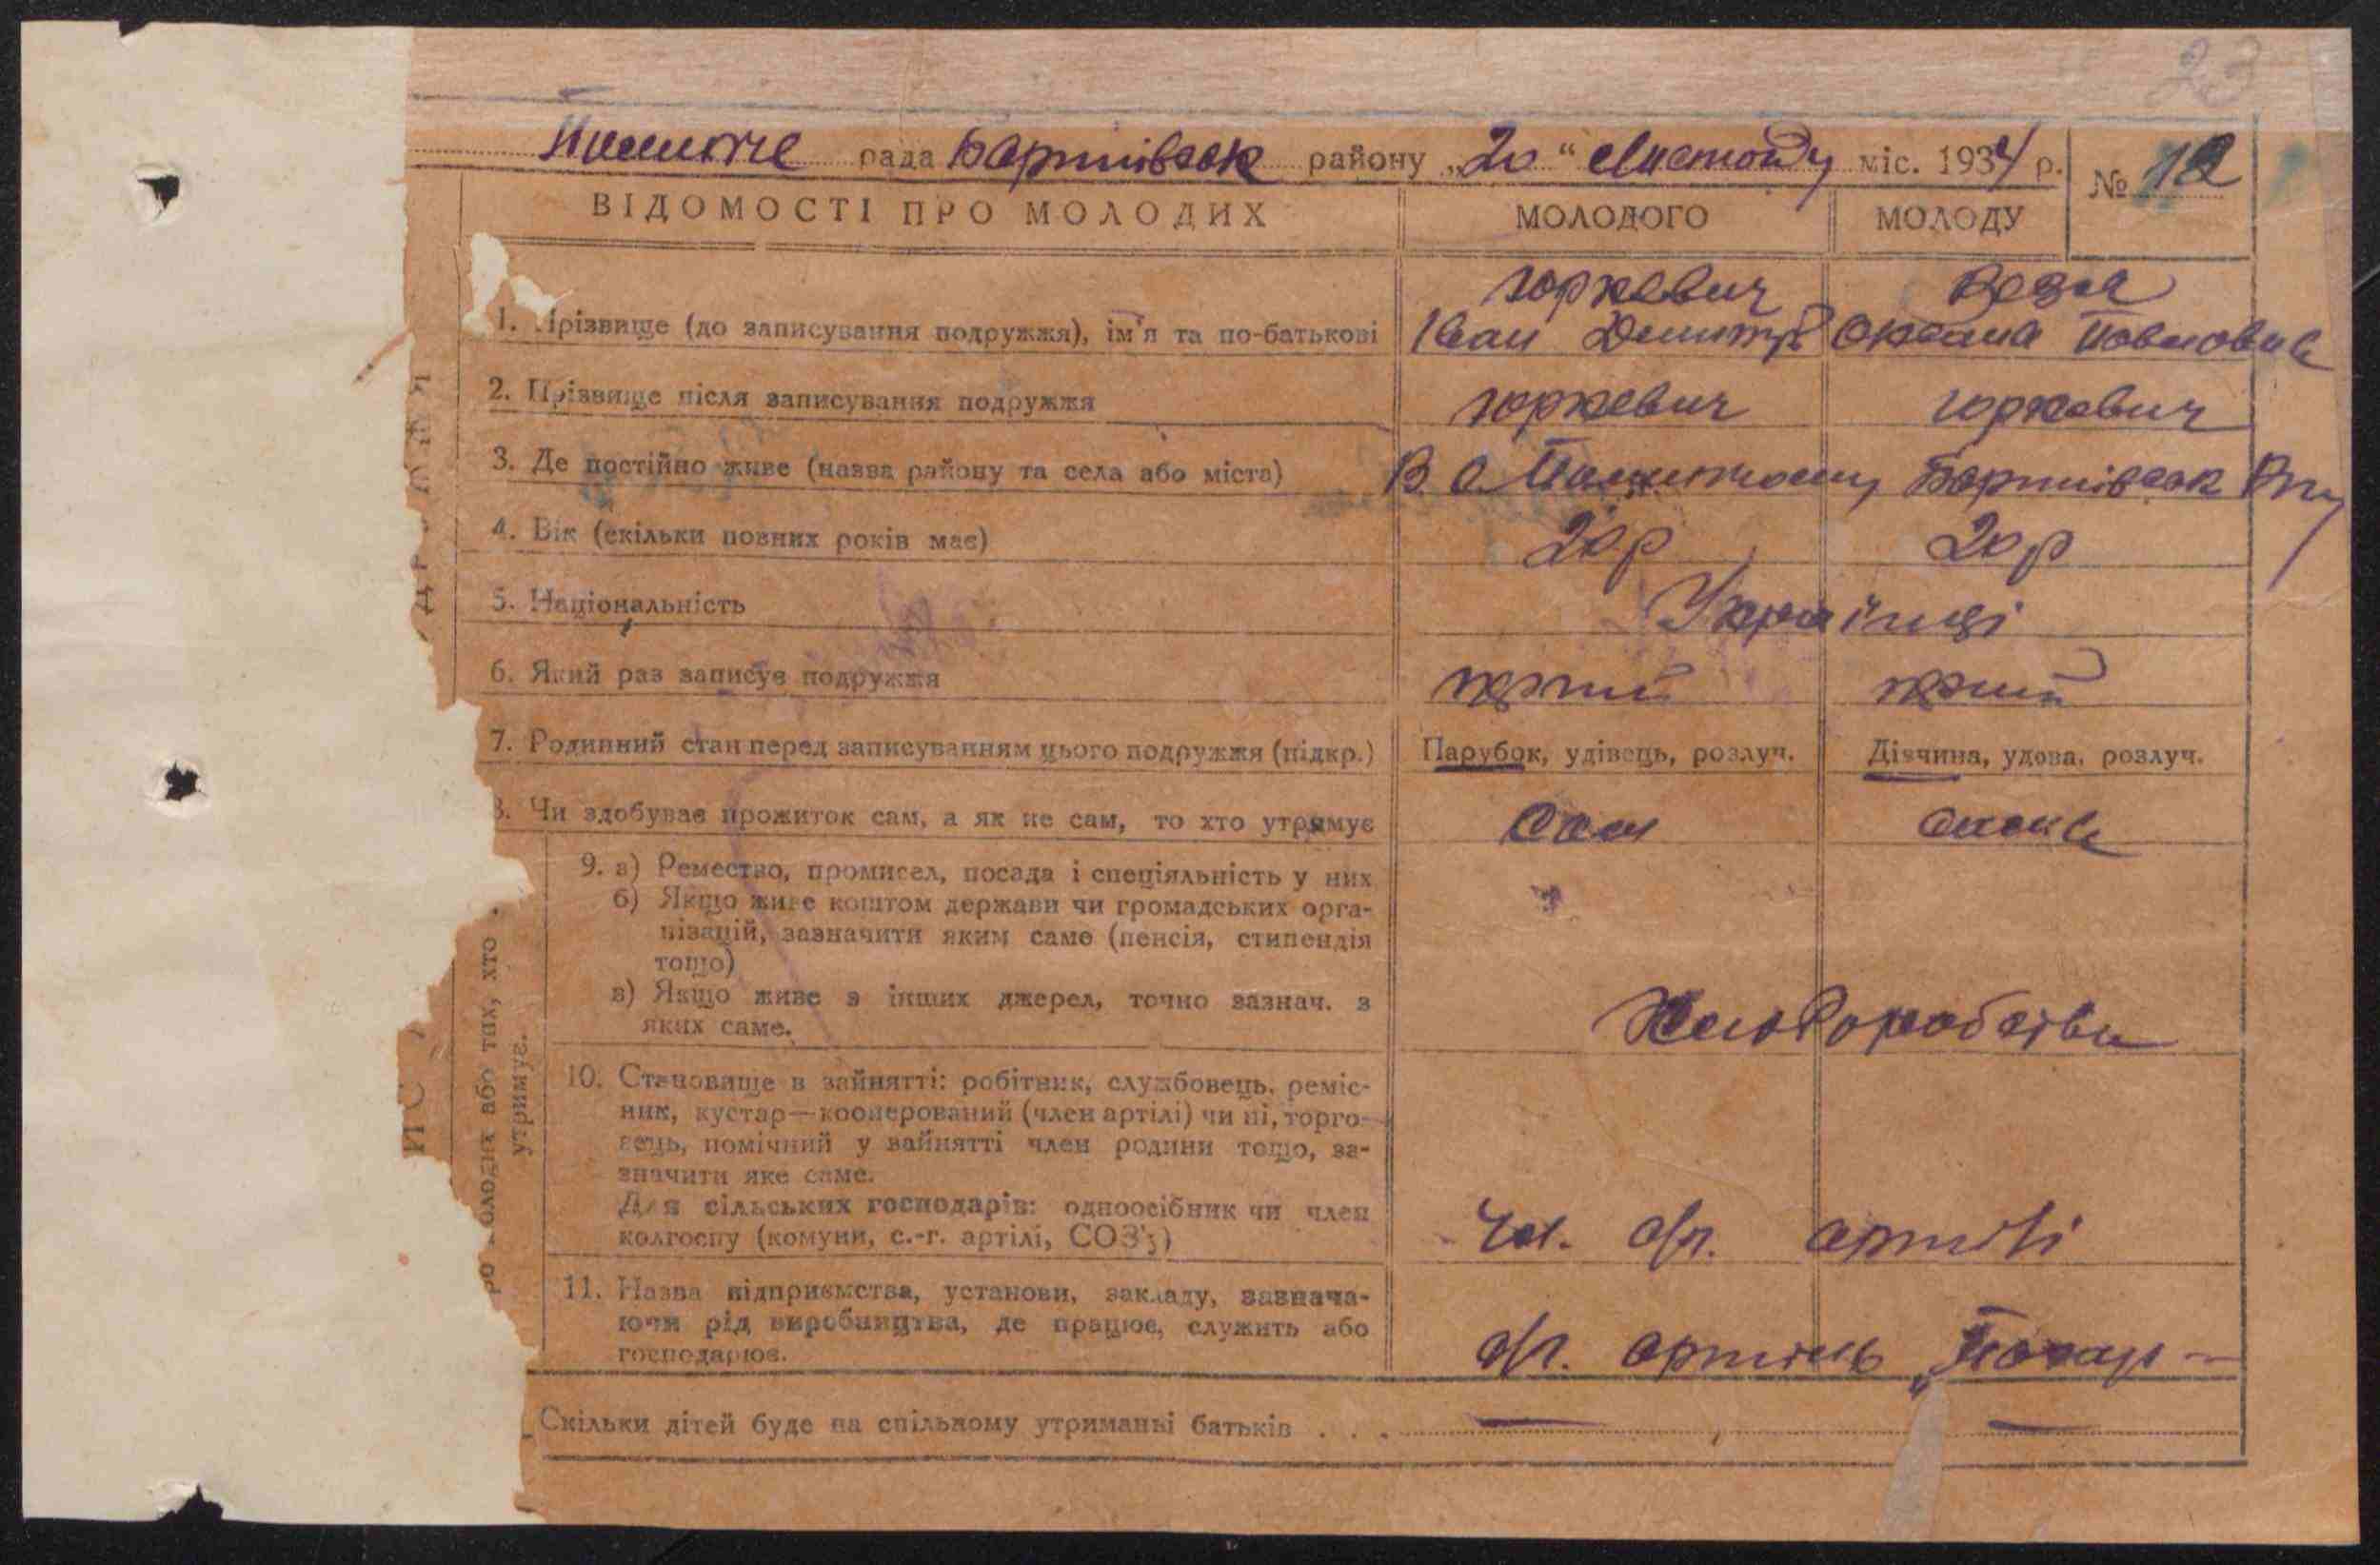 23
рада района „20“ Листопаду міс. 1934 р. № 12
ВІДОМОСТІ ПРО МОЛОДИХ МОЛОДОГО МОЛОДУ
Юркевич
1. Прізвище (до записування подружжя), ім'я та по-батькові Іван Дмитр Оксана Павловна
2. Прізвище після записування подружжя Юркевич Юркевич
3. Де постійно живе (назва району та села або міста) В с.
4. Вік (скільки повних років має) 20 р 20 р
5. Національність Українці
6. Який раз записує подружжя
7. Родинний стан перед записуванням цього подружжя (підкр.) Парубок, удівець, розлуч. Дівчина, удова, розлуч.
8. Чи здобуває прожиток сам, а як не сам, то хто утримує Сам сама
9. а) Ремество, промисел, посада і спеціяльність у них
б) Якщо живе коштом держави чи громадських орга-
нізацій, зазначити яким саме (пенсія, стипендія
тощо)
в) Якщо живе з інших джерел, точно зазнач. з
яких саме.
Хлібороботва
10. Становище в зайнятті: робітник, службовець, реміс-
ник, кустар—кооперований (член артілі) чи ні, торго-
вець, помічний у зайнятті член родини тощо, за-
значити яке саме.
Для сільських господарів: одноосібник чи член
колгоспу (комуни, с.-г. артілі, СОЗ'у) Чл. с/г. артілі
11. Назва підприємства, установи, закладу, зазнача-
ючи рід виробництва, де працює, служить або
господарює. с/г. артіль
Скільки дітей буде на спільному утриманні батьків . . . — —
або тих, хто
утримує.